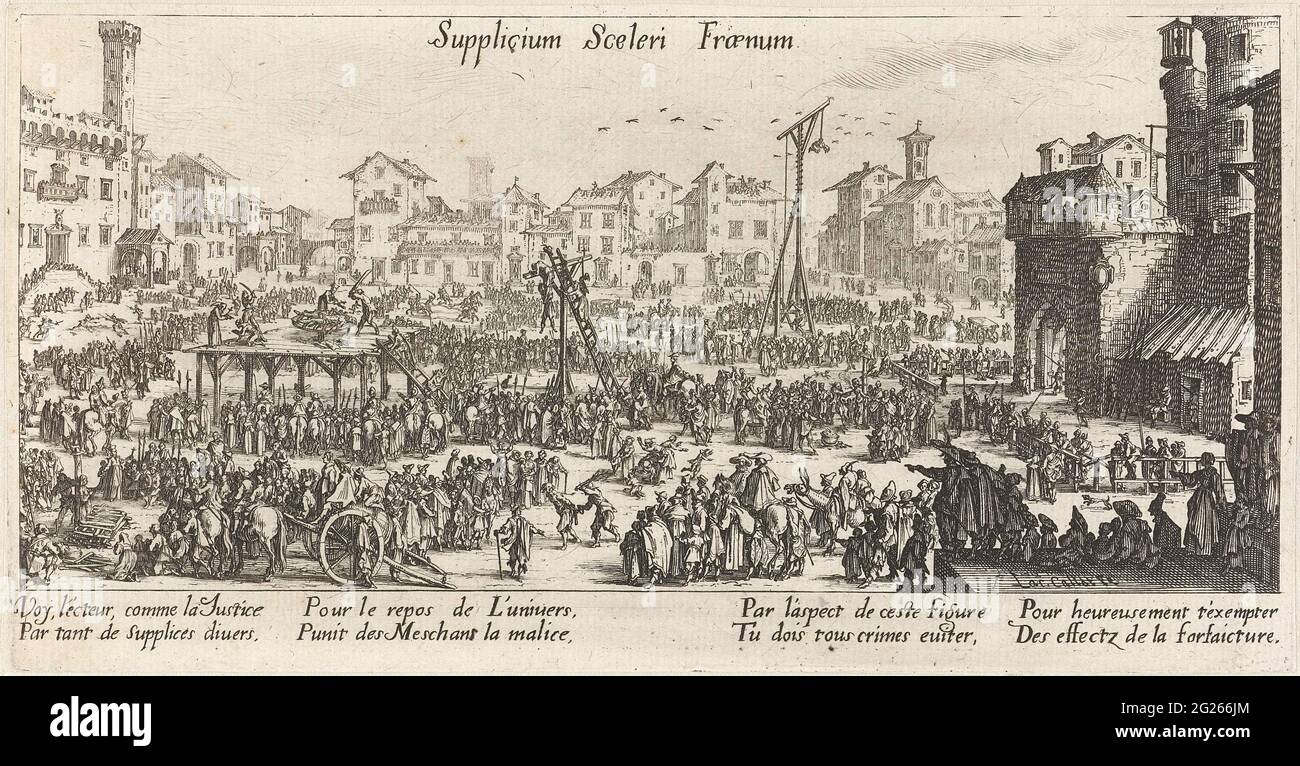 Suppliçium Sceleri Frœnum.
Voy, lécteur, comme la Justice
Par tant de Supplices diuers,
Pour le repos de L'uniuers,
Punit des Meschans la malice,
Par l'aspect de ceste figure
Tu dois tous crimes euiter,
Pour heureusement t'exempter
Des effectz de la forfaicture.
alamy
alamy
Image ID: 2G266JM
www.alamy.com